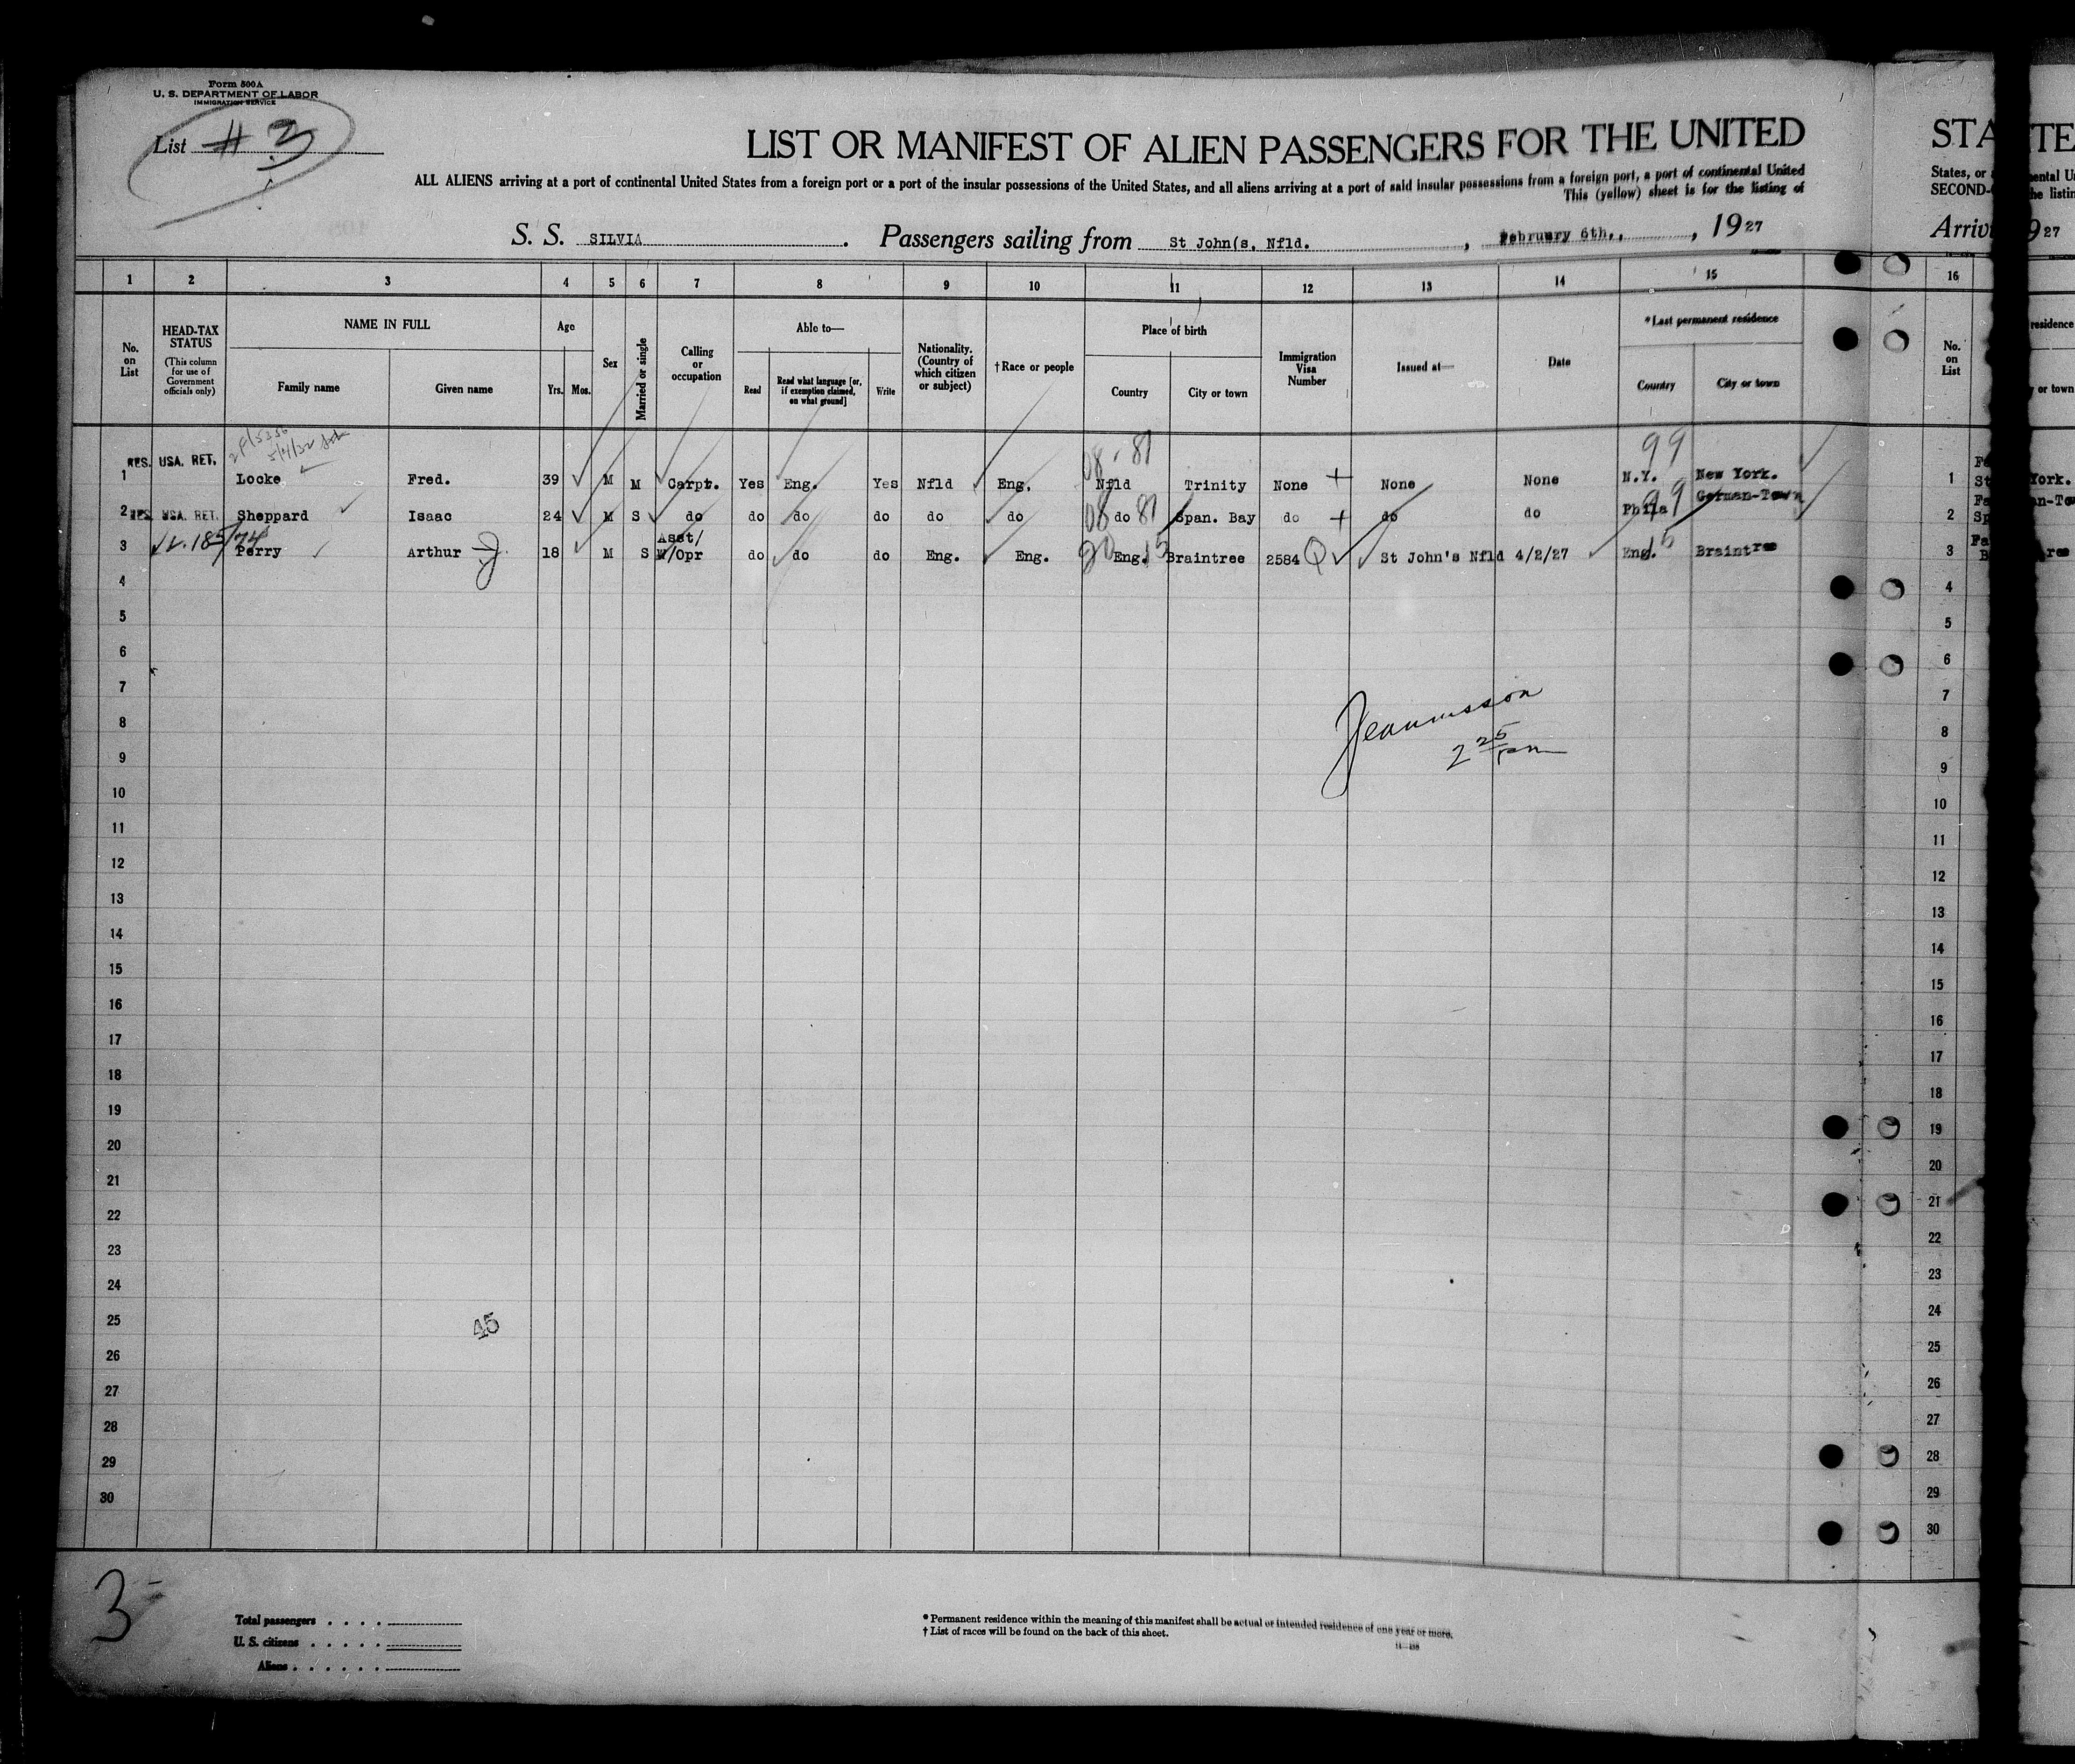 Form 500A
U. S. DEPARTMENT OF LABOR
IMMIGRATION SERVICE
List # 3
LIST OR MANIFEST OF ALIEN PASSENGERS FOR THE UNITED
ALL ALIENS arriving at a port of continental United States from a foreign port or a port of the insular possessions of the United States, and all aliens arriving at a port of said insular possessions from a foreign port, a port of continental United
This (yellow) sheet is for the listing of
S. S. SILVIA. Passengers sailing from St John(s, Nfld. , February 6th,, , 1927
STA TE
States, or a ental U
SECOND- he listin
Arriv 927
1 2 3 4 5 6 7 8 9 10 11 12 13 14 15 16
No. on List
HEAD-TAX STATUS
(This column for use of Government officials only)
NAME IN FULL
Family name
Given name
Age
Yrs. Mos.
Sex
Married or single
Calling or occupation
Able to—
Read
Read what language [or, if exemption claimed, on what ground]
Write
Nationality. (Country of which citizen or subject)
†Race or people
Place of birth
Country
City or town
Immigration Visa Number
Issued at—
Date
*Last permanent residence
Country
City or town
No. on List
residence
y or town
08 - 81 99
1 RES. USA. RET. Locke Fred. 39 M M Carpt. Yes Eng. Yes Nfld Eng. Nfld Trinity None + None None N.Y. New York. 1 St York.
2 RES. USA. RET. Sheppard Isaac 24 M S do do do do do do 08 do 81 Span. Bay do + do do Phila 99 German-Town 2 Sp an-Tow
3 Perry Arthur 18 M S Asst/ W/Opr do do do Eng. Eng. 20 Eng. 15 Braintree 2584 St John's Nfld 4/2/27 Eng. 15 Braintree 3 B ree
4 4
5 5
6 6
7 7
8 8
9 9
10 10
11 11
12 12
13 13
14 14
15 15
16 16
17 17
18 18
19 19
20 20
21 21
22 22
23 23
24 24
25 25
26 26
27 27
28 28
29 29
30 30
2 25 pm
45
3
Total passengers . . . .
U. S. citizens . . . . .
Aliens . . . . . .
* Permanent residence within the meaning of this manifest shall be actual or intended residence of one year or more.
† List of races will be found on the back of this sheet.